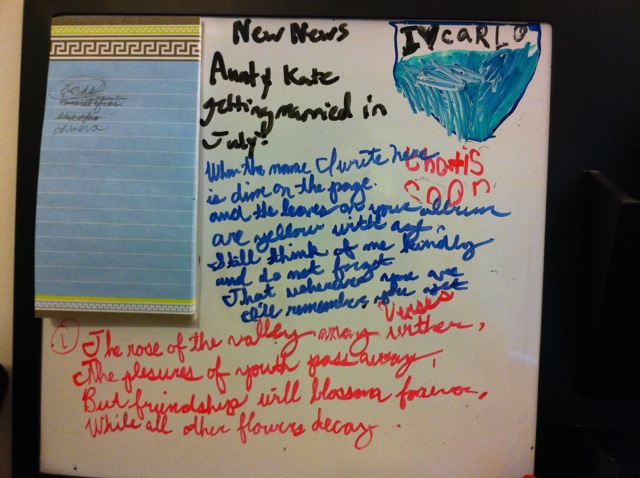 New News
Aunty Kate
getting married in
July!
I ♥ CARLO
that is
soon
When the name I write here
is dim on the page
and the leaves of your album
are yellow with age,
Still think of me kindly
and do not forget
That wherever you are
I'll remember you yet
Verses
1
The rose of the valley may wither,
The plesures of youth pass away,
But friendship will blossom forever,
While all other flowers decay.